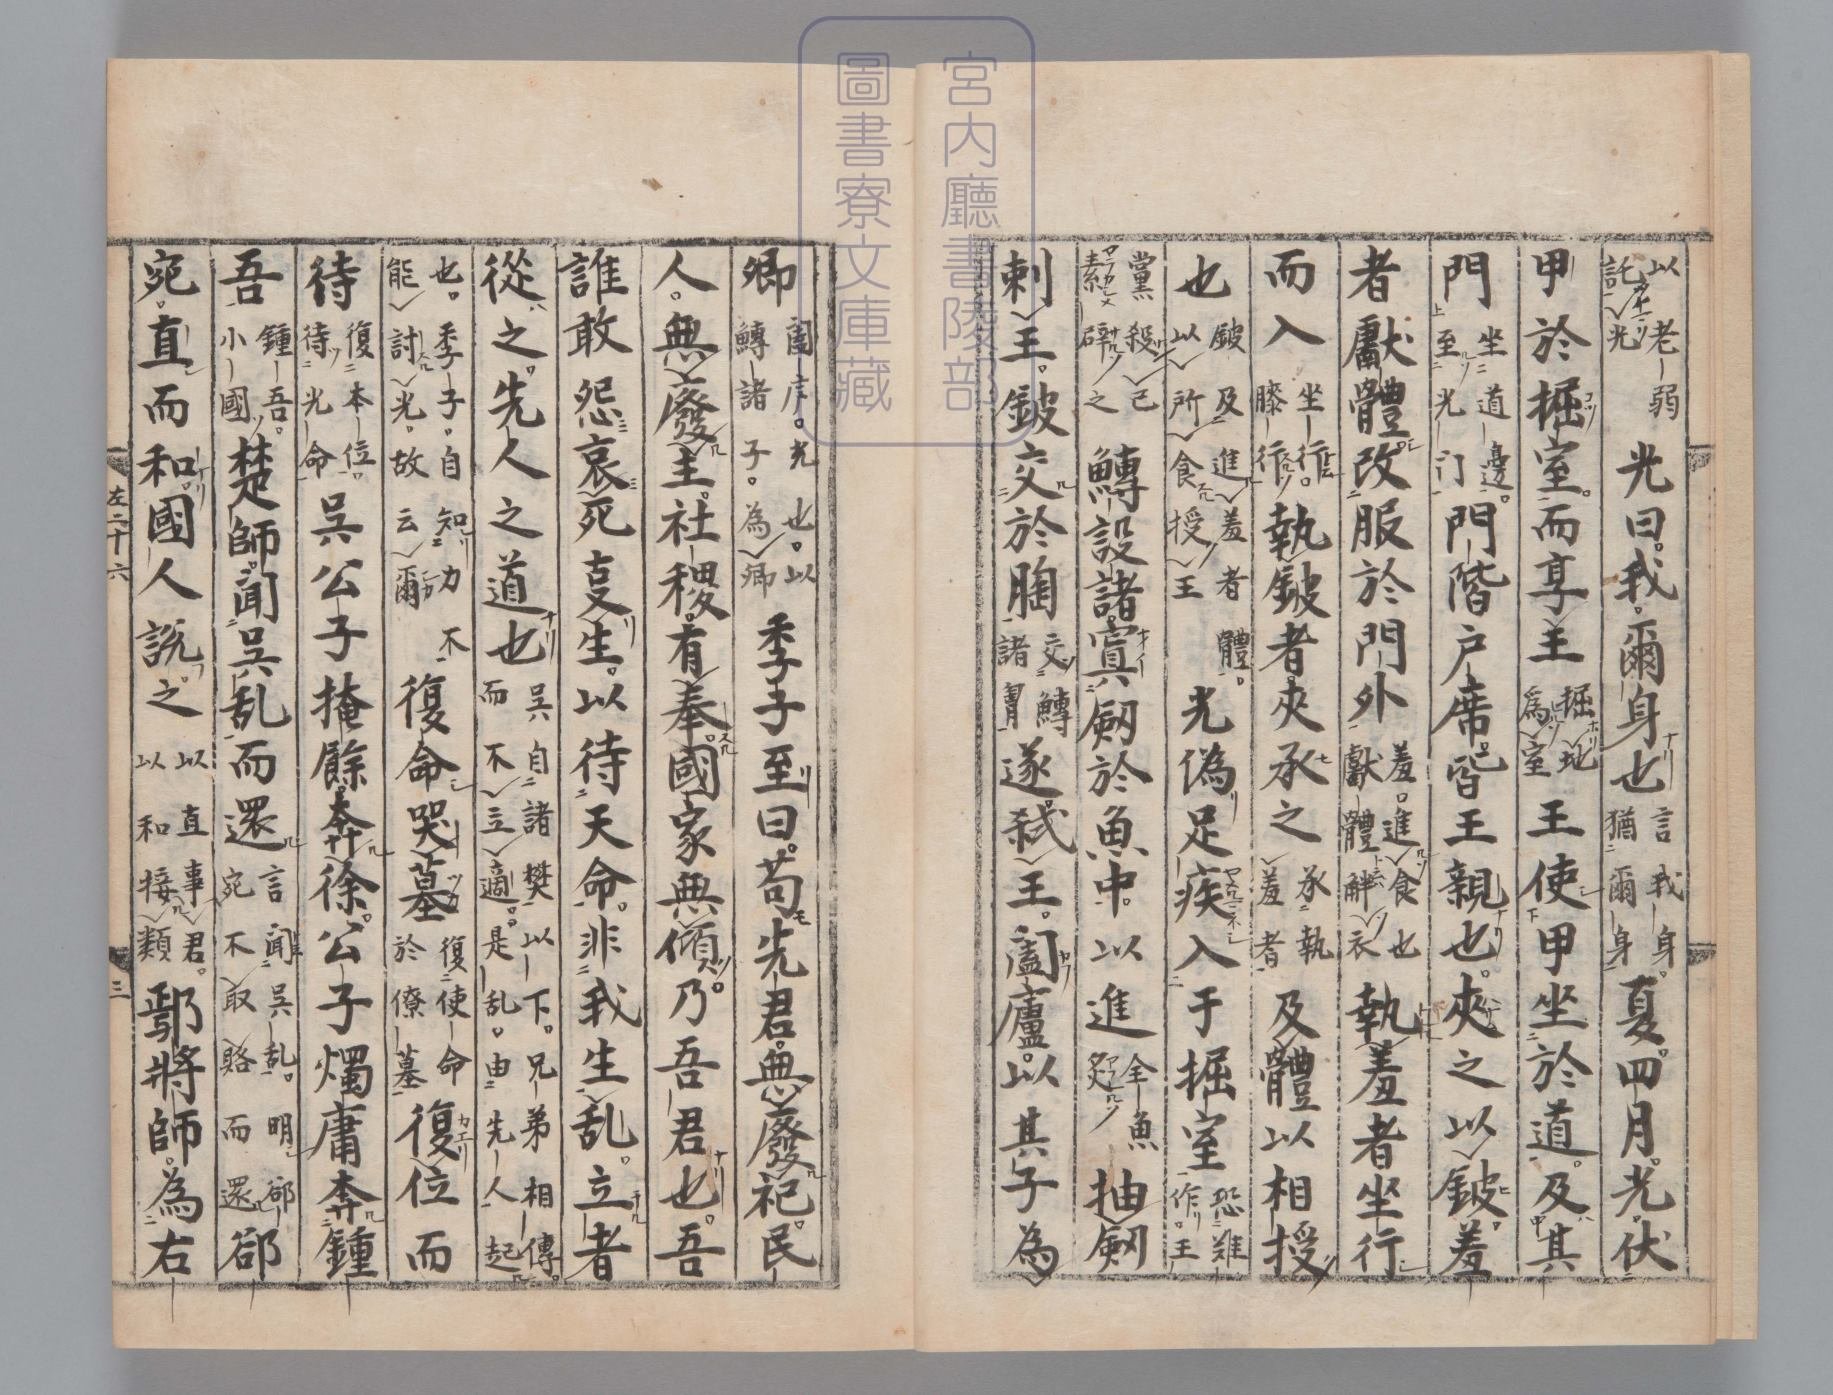 宮内廳書陵部
圖書寮文庫藏
以老弱託光光曰我爾身也言我身猶爾身夏四月光伏
甲於掘室而享王掘地為室王使甲坐於道及其
門坐道邊至光門門階戶席皆王親也夾之以鈹羞
者獻體改服於門外羞進食也獻體觧衣執羞者坐行
而入坐行膝行執鈹者夾承之承執羞者及體以相授
也鈹及進羞者體以所食授王光偽足疾入于掘室恐難作王
黨殺己素辟之鱄設諸寘劒於魚中以進全魚炙抽劒
刺王鈹交於胷交鱄諸胷遂弒王闔廬以其子為
卿闔廬光也以鱄諸子為卿季子至曰苟先君無廢祀民
人無廢主社稷有奉國家無傾乃吾君也吾
誰敢怨哀死叓生以待天命非我生乱立者
從之先人之道也吳自諸樊以下兄弟相傳而不立適是乱由先人起
也季子自知力不能討光故云爾復命哭墓復使命於僚墓復位而
待復本位待光命吳公子掩餘奔徐公子燭庸奔鍾
吾鍾吾小國楚師聞吳乱而還言聞吳乱明郤宛不取賂而還郤
宛直而和國人說之以直事君以和接類鄢將師為右
左二十六
三